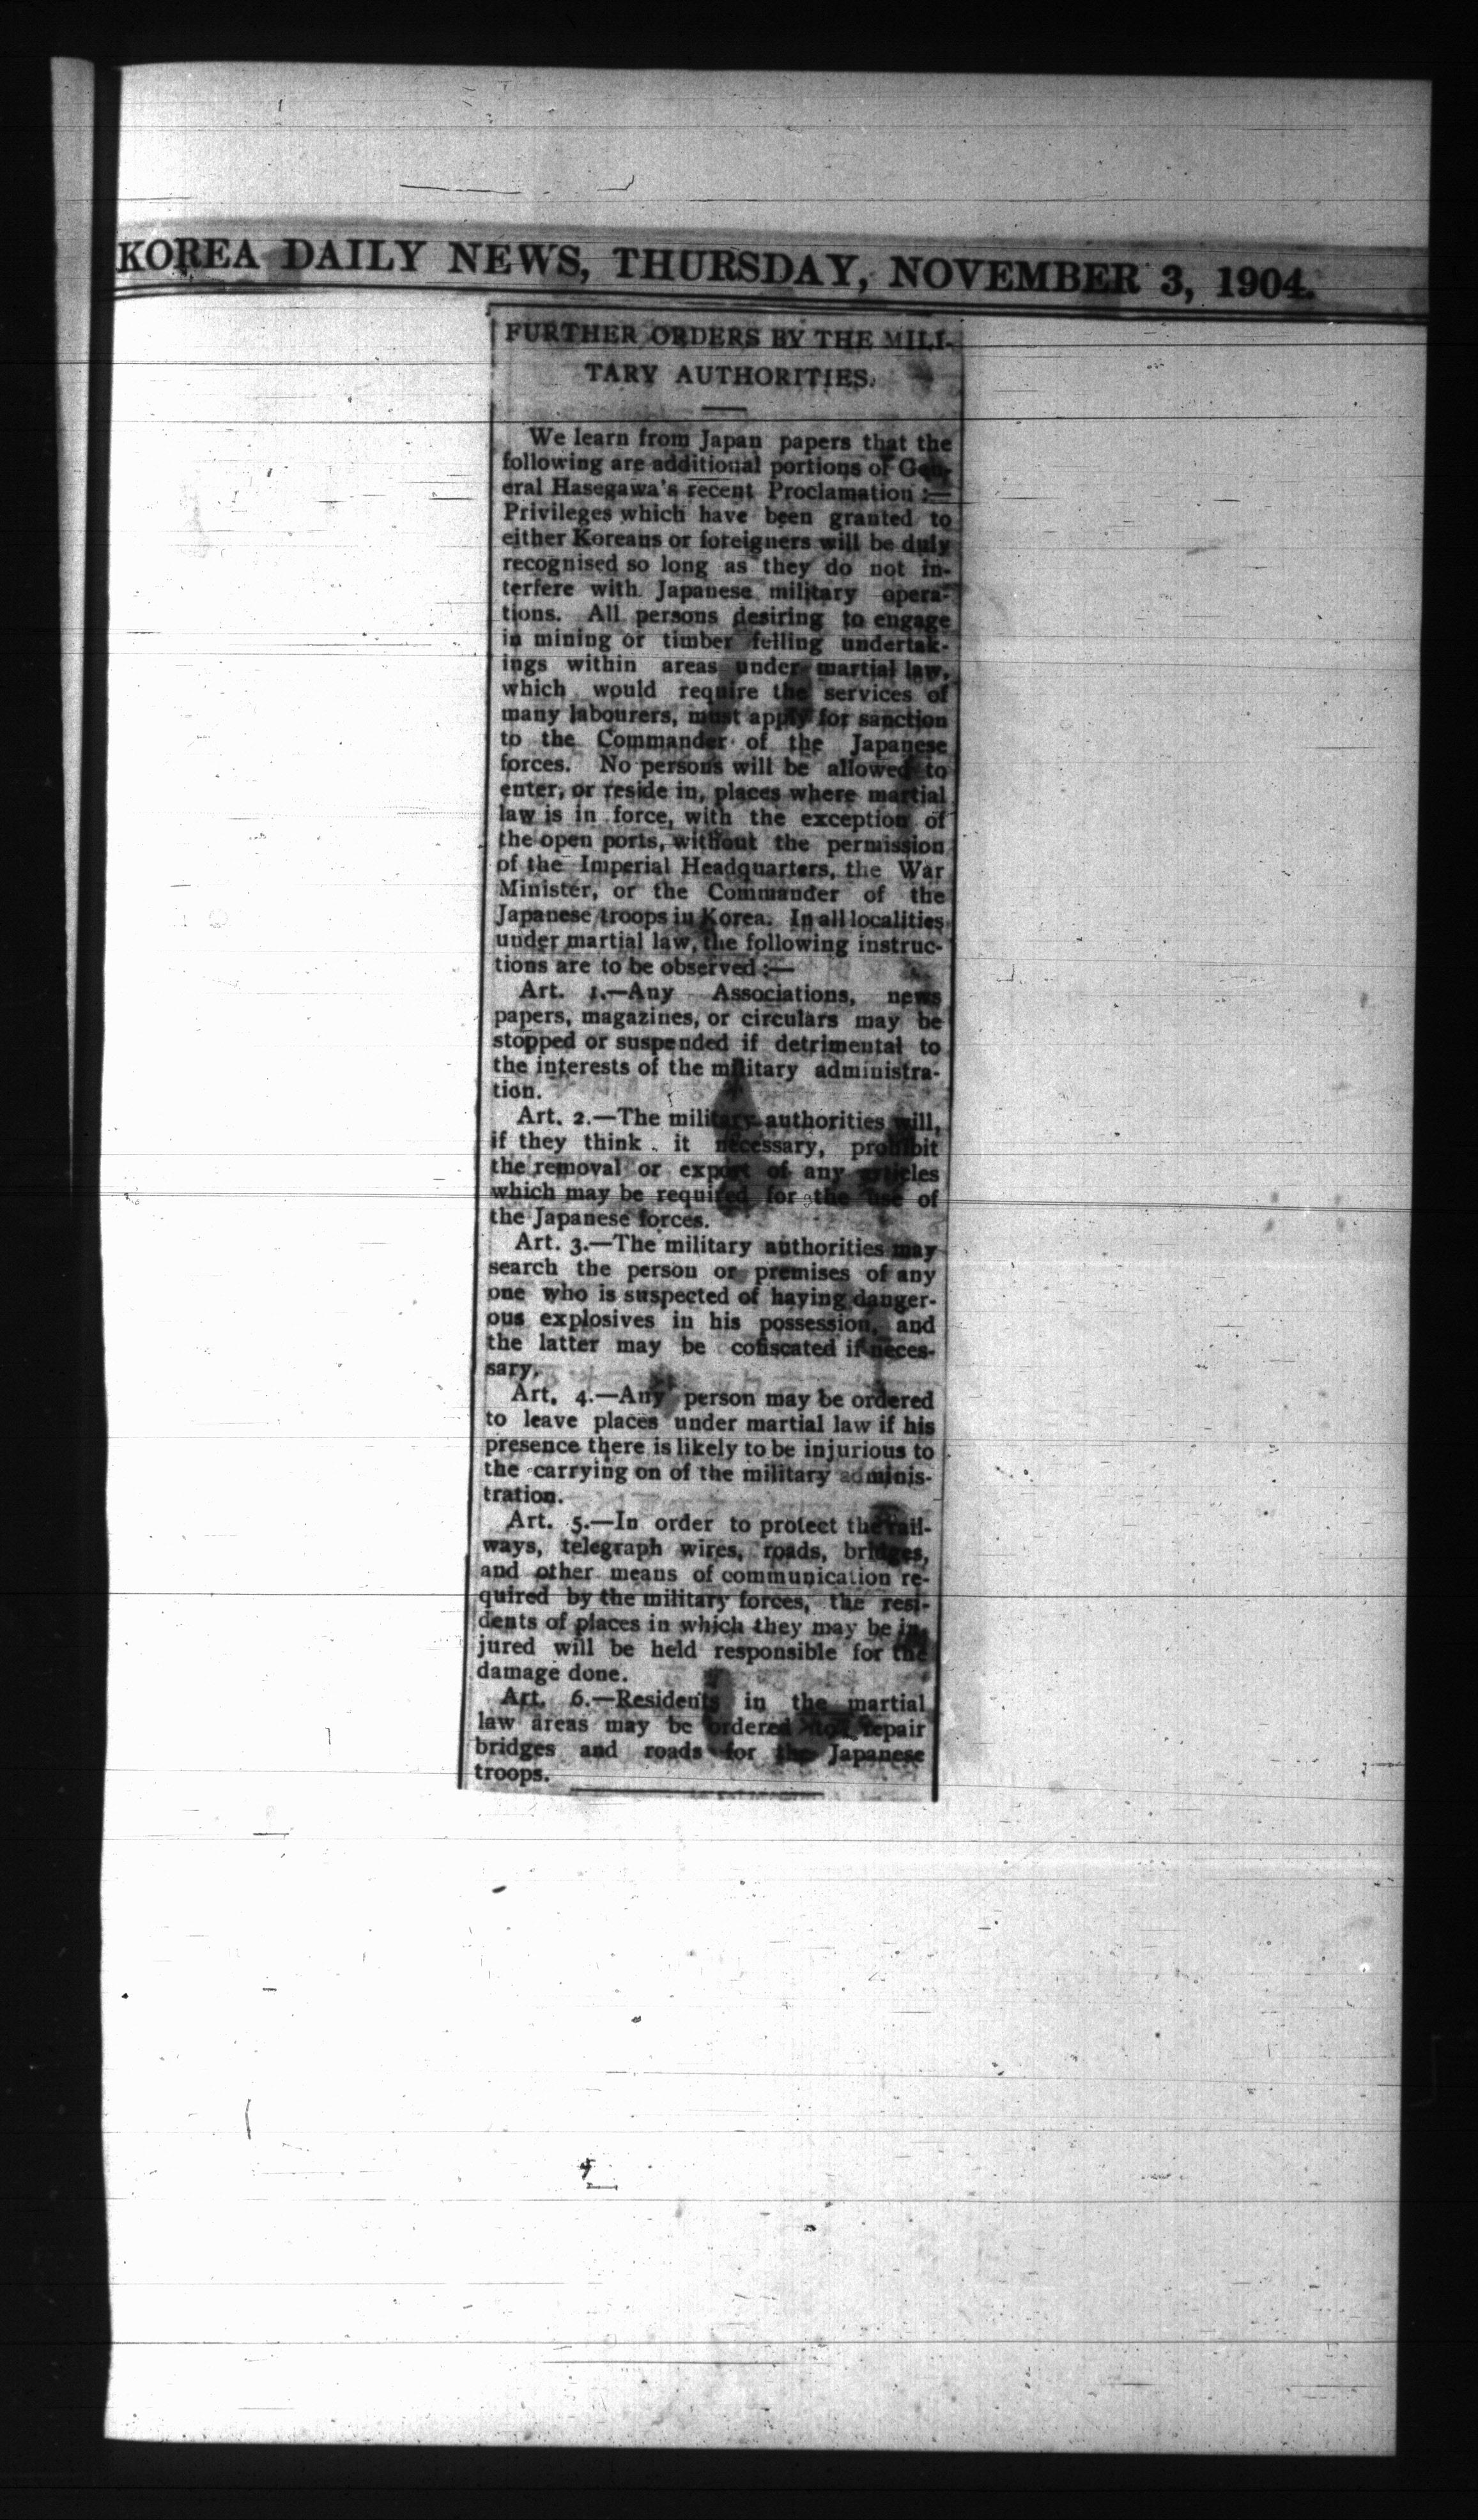 KOREA DAILY NEWS, THURSDAY, NOVEMBER 3, 1904.
FURTHER ORDERS BY THE MILI-
TARY AUTHORITIES.
We learn from Japan papers that the
following are additional portions of Gen-
eral Hasegawa's recent Proclamation :—
Privileges which have been granted to
either Koreans or foreigners will be duly
recognised so long as they do not in-
terfere with Japanese military opera-
tions. All persons desiring to engage
in mining or timber felling undertak-
ings within areas under martial law,
which would require the services of
many labourers, must apply for sanction
to the Commander of the Japanese
forces. No persons will be allowed to
enter, or reside in, places where martial
law is in force, with the exception of
the open ports, without the permission
of the Imperial Headquarters, the War
Minister, or the Commander of the
Japanese troops in Korea. In all localities
under martial law, the following instruc-
tions are to be observed :—
Art. 1.—Any Associations, news
papers, magazines, or circulars may be
stopped or suspended if detrimental to
the interests of the military administra-
tion.
Art. 2.—The military authorities will,
if they think it necessary, prohibit
the removal or export of any articles
which may be required for the use of
the Japanese forces.
Art. 3.—The military authorities may
search the person or premises of any
one who is suspected of having danger-
ous explosives in his possession, and
the latter may be cofiscated if neces-
sary.
Art. 4.—Any person may be ordered
to leave places under martial law if his
presence there is likely to be injurious to
the carrying on of the military adminis-
tration.
Art. 5.—In order to protect the rail-
ways, telegraph wires, roads, bridges,
and other means of communication re-
quired by the military forces, the resi-
dents of places in which they may be in-
jured will be held responsible for the
damage done.
Art. 6.—Residents in the martial
law areas may be ordered to repair
bridges and roads for the Japanese
troops.